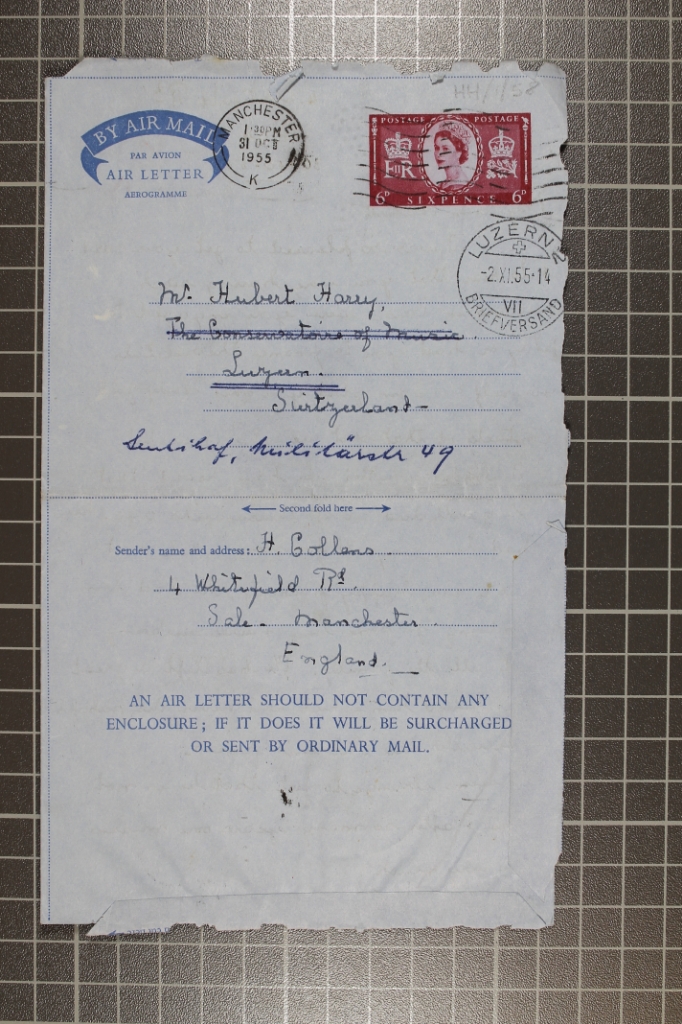 HH/1/52
BY AIR MAIL
PAR AVION
AIR LETTER
AEROGRAMME
MANCHESTER
1 30PM
31 OCT
1955
K
POSTAGE POSTAGE
E II R
6D SIXPENCE 6D
LUZERN 2
-2.XI.55-14
VII
BRIEFVERSAND
Mr. Hubert Harry,
The Conservatoire of Music.
Luzern.
Switzerland-
Sentihof, Militärstr 49
Second fold here
Sender's name and address: H. Collens.
4 Whitefield Rd.
Sale. Manchester.
England.
AN AIR LETTER SHOULD NOT CONTAIN ANY
ENCLOSURE; IF IT DOES IT WILL BE SURCHARGED
OR SENT BY ORDINARY MAIL.